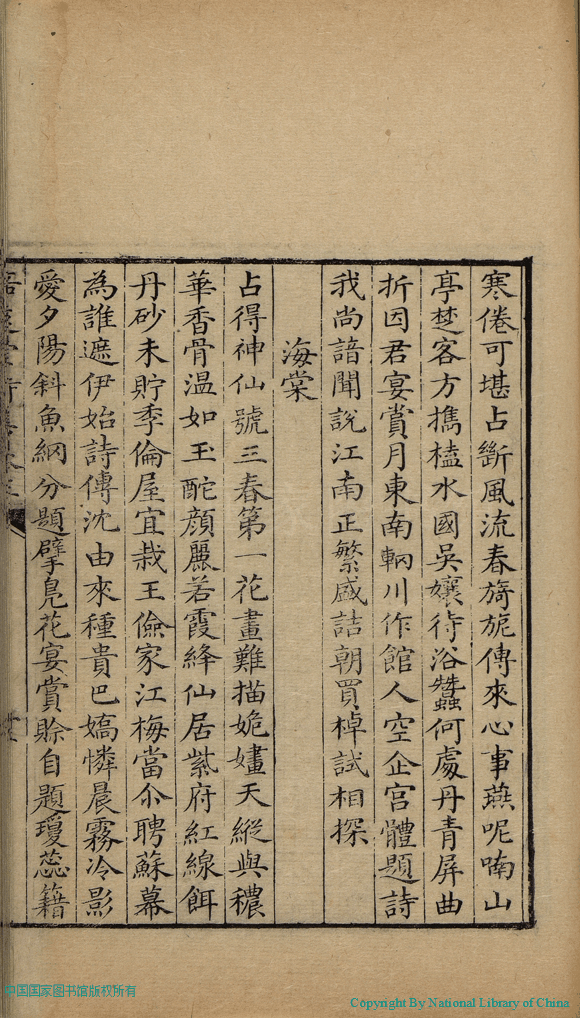 寒倦可堪占斷風流春旖旎傳來心事燕呢喃山
亭楚客方攜榼水國吳孃待浴蠶何處丹青屏曲
折因君宴賞月東南輞川作館人空企宮體題詩
我尚諳聞說江南正繁盛詰朝買棹試相探
海棠
占得神仙號三春第一花畫難描婗嫿天縱與穠
華香骨溫如玉酡顏麗若霞絳仙居紫府紅線餌
丹砂未貯季倫屋宜栽王儉家江梅當尒聘蘇幕
為誰遮伊始詩傳沈由來種貴巴嬌憐晨霧冷影
愛夕陽斜魚網分題擘鳧花宴賞賒自題瓊蕊籍
中国国家图书馆版权所有
Copyright By National Library of China